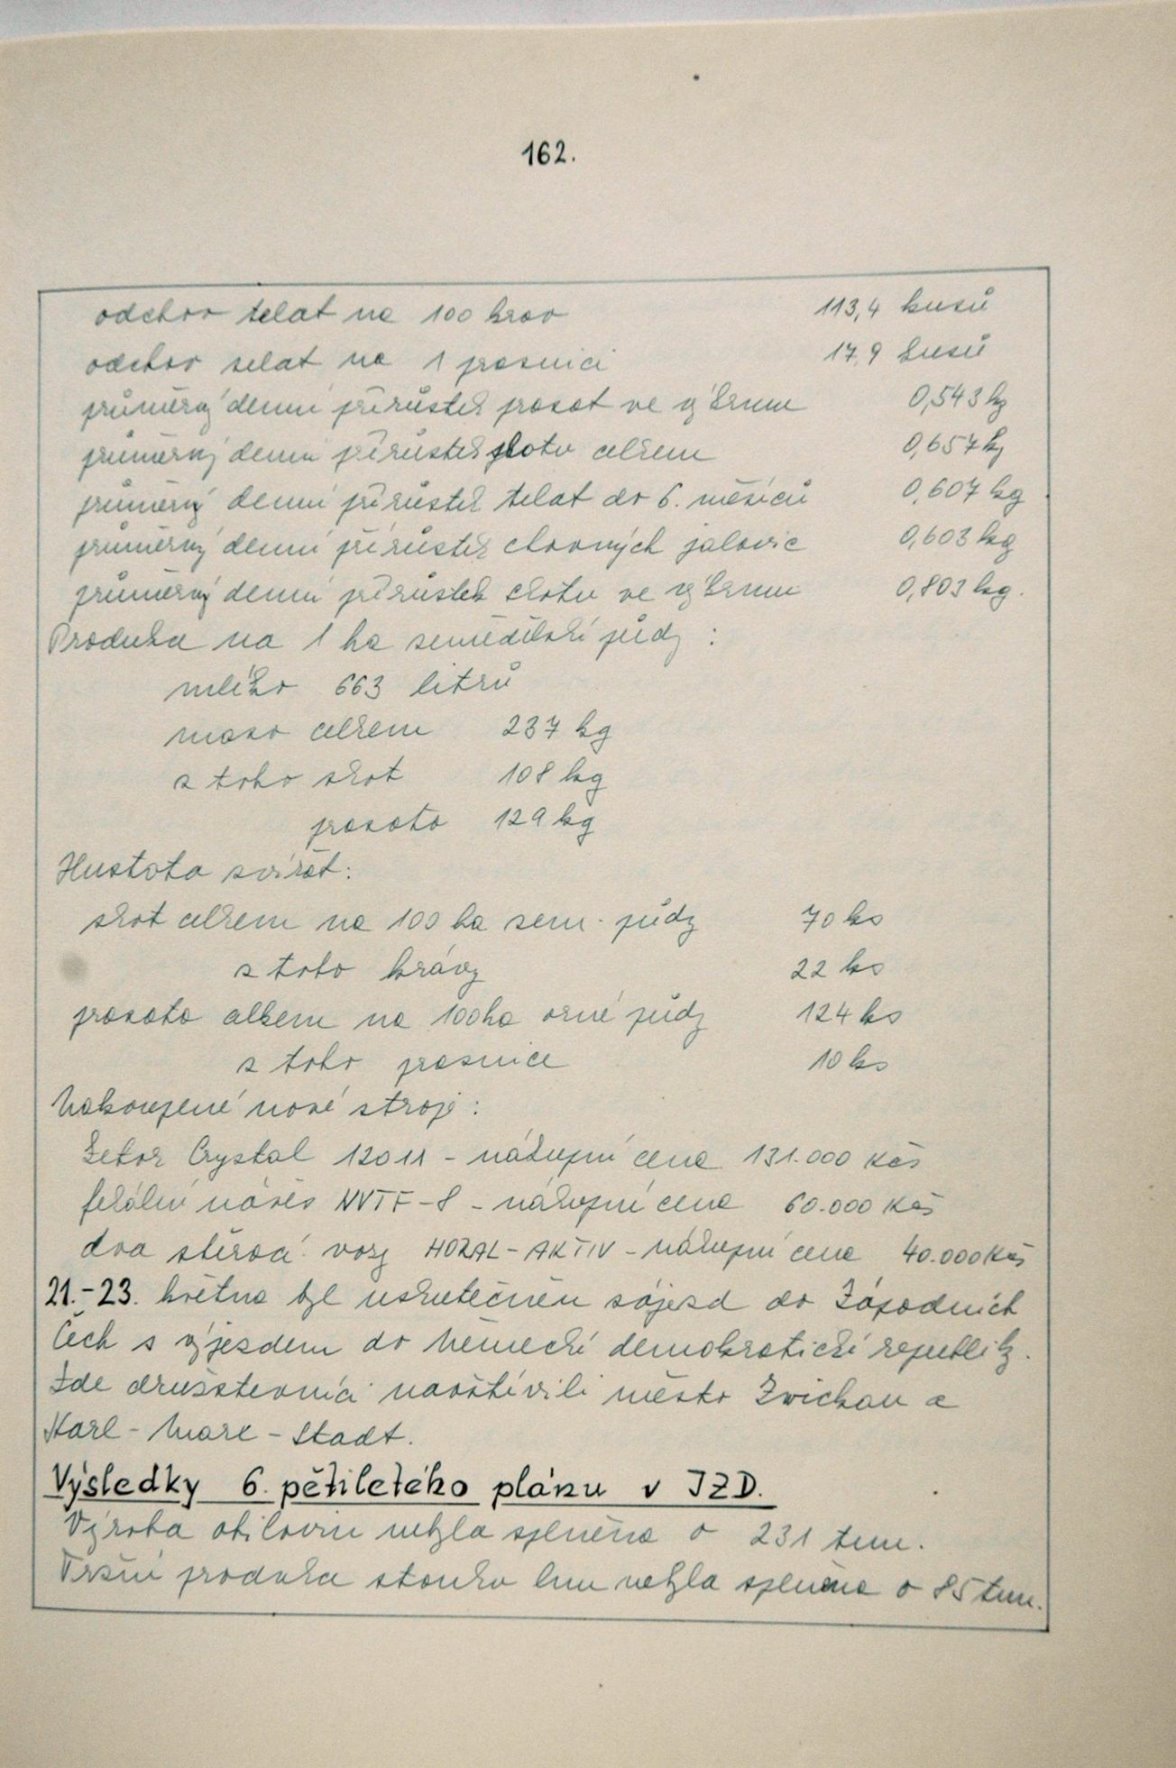 162.
odchov telat na 100 krav 113,4 kusů
odchov selat na 1 prasnici 17,9 kusů
průměrný denní přírůstek prasat ve výkrmu 0,543 kg
průměrný denní přírůstek skotu celkem 0,657 kg
průměrný denní přírůstek telat do 6. měsíců 0,607 kg
průměrný denní přírůstek chovných jalovic 0,603 kg
průměrný denní přírůstek skotu ve výkrmu 0,803 kg.
Produkce na 1 ha zemědělské půdy :
mléko 663 litrů
maso celkem 237 kg
z toho skot 108 kg
prasata 129 kg
Hustota zvířat:
skot celkem na 100 ha zem. půdy 70 ks
z toho krávy 22 ks
prasata celkem na 100 ha orné půdy 124 ks
z toho prasnice 10 ks
Nakoupené nové stroje :
Zetor Crystal 12011 - nákupní cena 131.000 Kčs
fekální návěs NVTF-8 - nákupní cena 60.000 Kčs
dva sběrací vozy HORAL-AKTIV - nákupní cena 40.000 Kčs
21.-23. května byl uskutečněn zájezd do Západních
Čech s výjezdem do Německé demokratické republiky.
Zde družstevníci navštívili město Zwickau a
Karl-Marx-Stadt.
Výsledky 6. pětiletého plánu v JZD.
Výroba obilovin nebyla splněna o 231 tun.
Tržní produkce stonku lnu nebyla splněna o 85 tun.